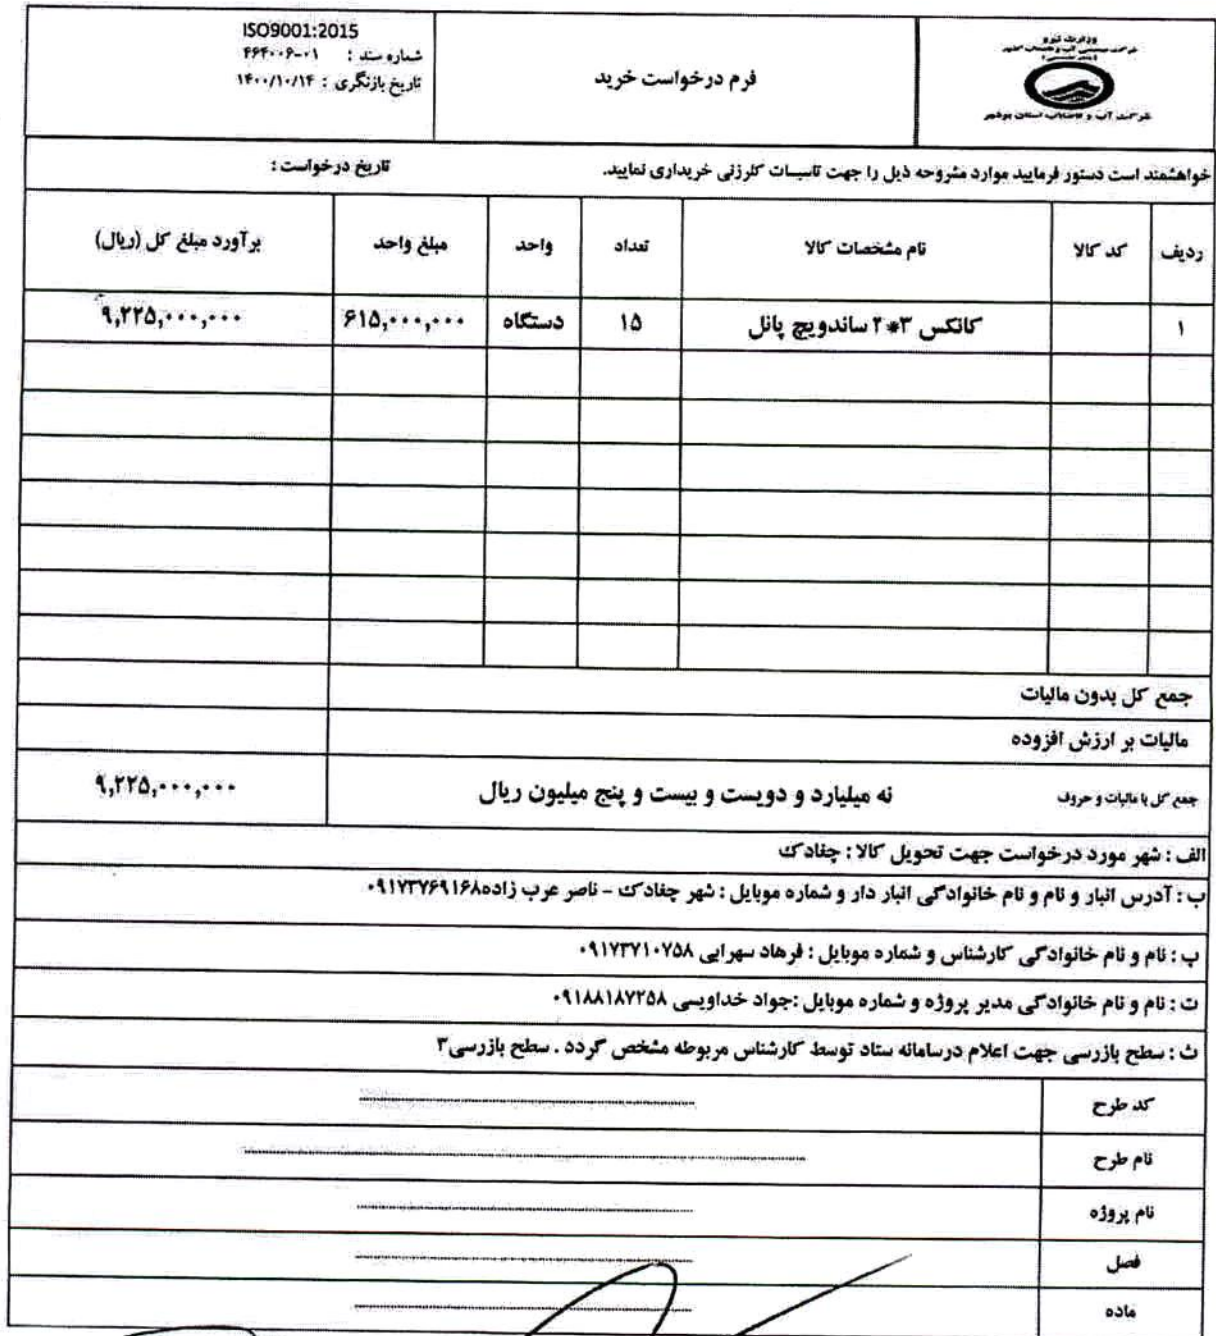 وزارت نیرو
شرکت مهندسی آب و فاضلاب کشور
شرکت آب و فاضلاب استان بوشهر
فرم درخواست خرید
ISO9001:2015
شماره سند : ۴۶۴۰۰۶-۰۱
تاریخ بازنگری : ۱۴۰۰/۱۰/۱۴
خواهشمند است دستور فرمایید موارد مشروحه ذیل را جهت تاسیسات کلرزنی خریداری نمایید. تاریخ درخواست :
ردیف کد کالا نام مشخصات کالا تعداد واحد مبلغ واحد برآورد مبلغ کل (ریال)
۱ کانکس ۳*۲ ساندویچ پانل ۱۵ دستگاه ۶۱۵,۰۰۰,۰۰۰ ۹,۲۲۵,۰۰۰,۰۰۰
جمع کل بدون مالیات
مالیات بر ارزش افزوده
جمع کل با مالیات و حروف نه میلیارد و دویست و بیست و پنج میلیون ریال ۹,۲۲۵,۰۰۰,۰۰۰
الف : شهر مورد درخواست جهت تحویل کالا : چغادک
ب : آدرس انبار و نام و نام خانوادگی انبار دار و شماره موبایل : شهر چغادک - ناصر عرب زاده۰۹۱۷۳۷۶۹۱۶۸
پ : نام و نام خانوادگی کارشناس و شماره موبایل : فرهاد سهرابی ۰۹۱۷۳۷۱۰۷۵۸
ت : نام و نام خانوادگی مدیر پروژه و شماره موبایل :جواد خداویسی ۰۹۱۸۸۱۸۷۲۵۸
ث : سطح بازرسی جهت اعلام درسامانه ستاد توسط کارشناس مربوطه مشخص گردد . سطح بازرسی۳
کد طرح
نام طرح
نام پروژه
فصل
ماده